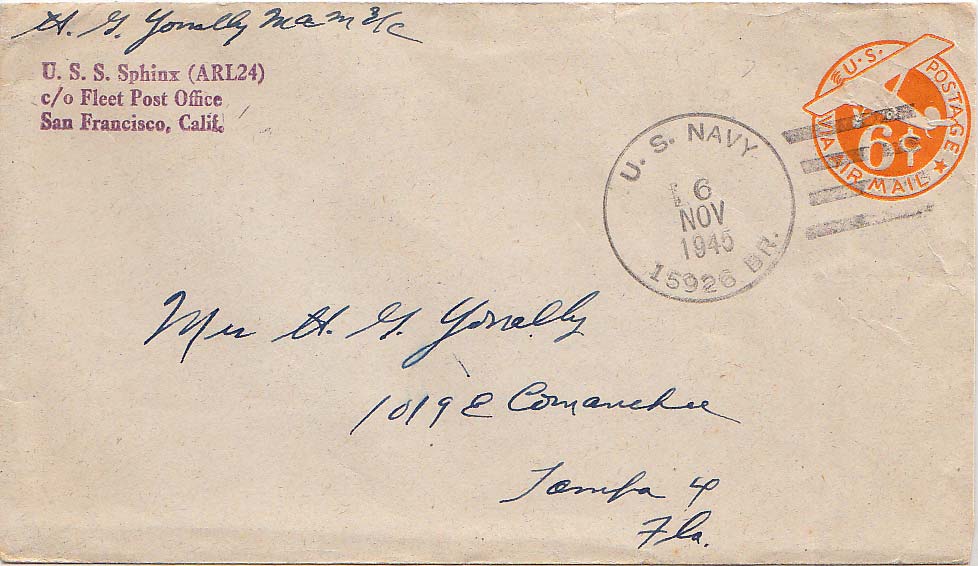 H. G. Yonally MaM 3/c
U. S. S. Sphinx (ARL24)
c/o Fleet Post Office
San Francisco, Calif.
U.S. POSTAGE
6¢
VIA AIR MAIL
U. S. NAVY
6
NOV
1945
15926 BR.
Mrs H. G. Yonally
1019 E Comanchee
Tampa 4
Fla.